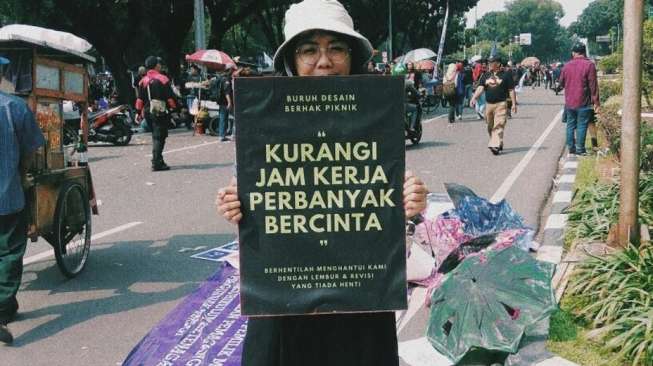 BURUH DESAIN
BERHAK PIKNIK
“
KURANGI
JAM KERJA
PERBANYAK
BERCINTA
”
BERHENTILAH MENGHANTUI KAMI
DENGAN LEMBUR & REVISI
YANG TIADA HENTI